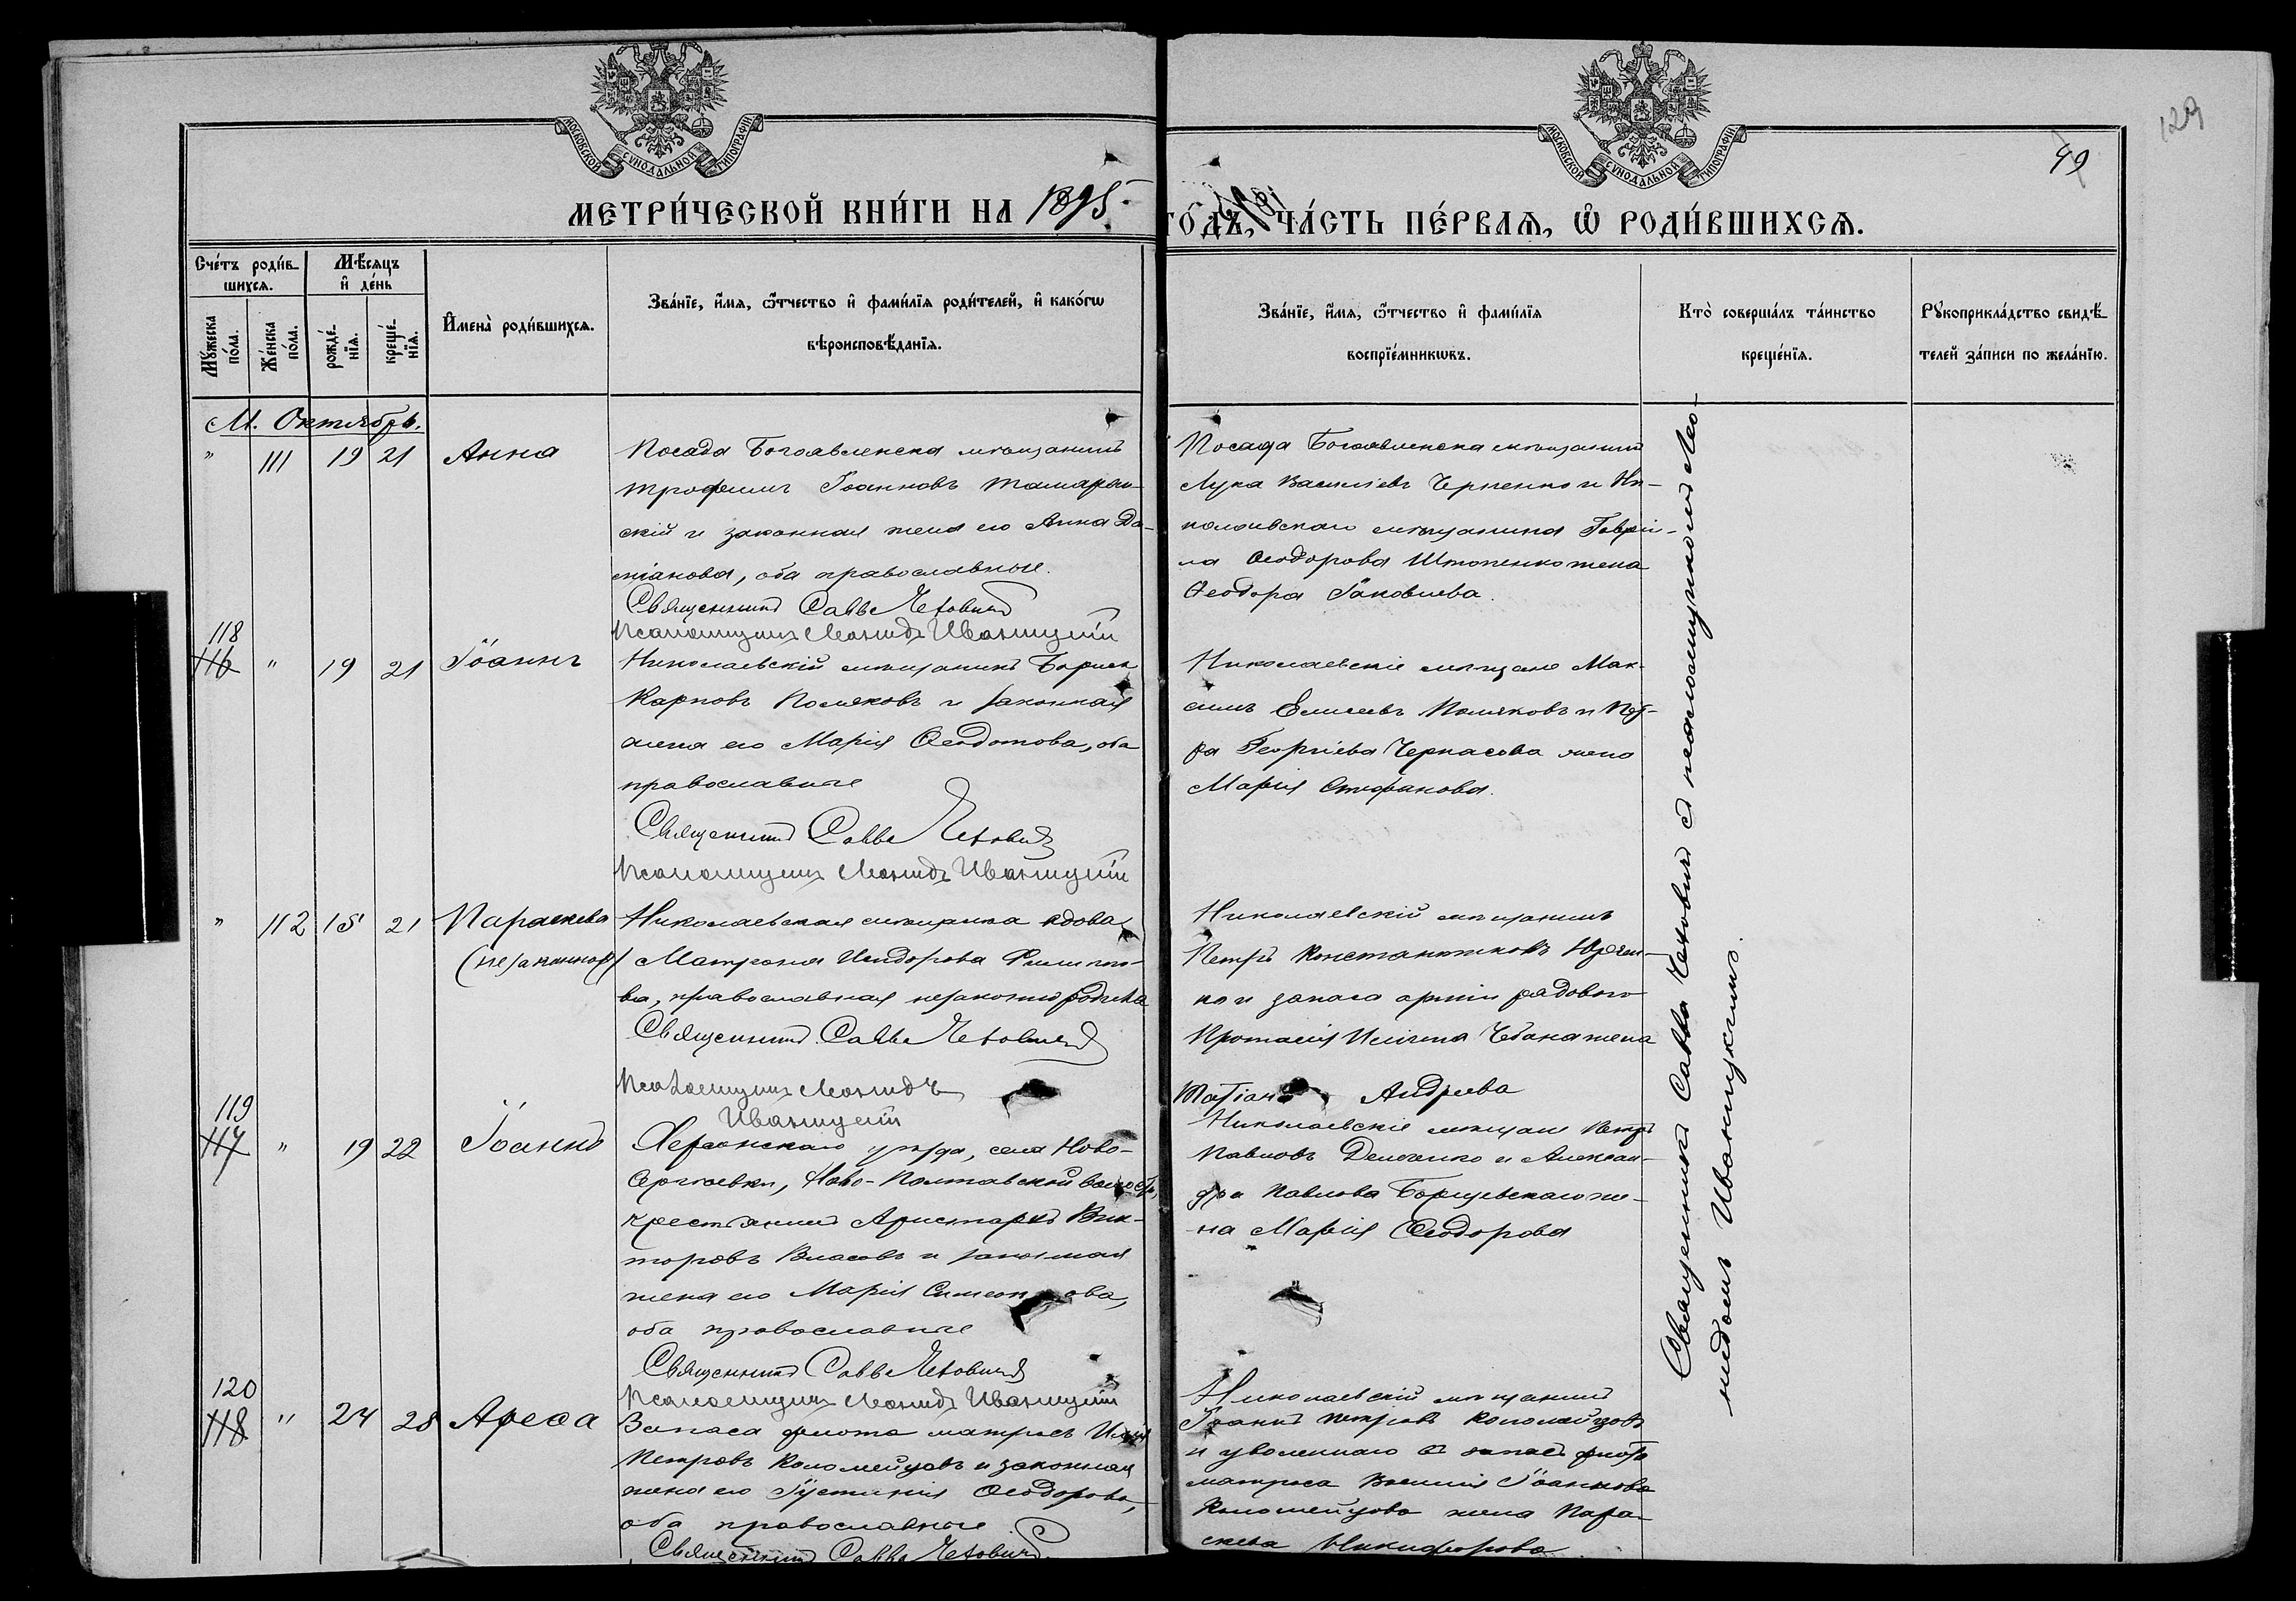 129
49
МОСКОВСКОЙ СѴНОДАЛЬНОЙ ТИПОГРАФІИ
МОСКОВСКОЙ СѴНОДАЛЬНОЙ ТИПОГРАФІИ
МЕТРИ́ЧЕСКОЙ КНИ́ГИ НА 1895
ГО́ДЪ, ЧА́СТЬ ПЕ́РВАѦ, Ѡ҆ РОДИ́ВШИХСѦ.
Сче́тъ роди́в-
шихсѧ.
Мѣ́сѧцъ
и҆ де́нь
Мꙋ́жеска
по́ла.
Же́нска
по́ла.
рожде́-
нїѧ.
креще́-
нїѧ.
И҆мена̀ роди́вшихсѧ.
Зва́нїе, и҆́мѧ, ѻ҆́тчество и҆ фами́лїѧ роди́телей, и҆ како́гѡ
вѣроисповѣ́данїѧ.
Зва́нїе, и҆́мѧ, ѻ҆́тчество и҆ фами́лїѧ
воспрїе́мникѡвъ.
Кто̀ соверша́лъ та́инство
креще́нїѧ.
Рꙋкоприкла́дство свидѣ́-
телей за́писи по жела́нїю.
М. Октябрь.
" 111 19 21 Анна
Посада Богоявленска мѣщанинъ
Трофимъ Іоанновъ
скій и законная жена его Анна Да-
міанова, оба православные.
Священникъ Савва Чехович
Псаломщикъ Леонидъ Иваницкій
Посада Богоявленска мѣщанинъ
Лука Васильевъ Черненко и Ни-
колаевскаго мѣщанина Гаврі-
ла Ѳеодорова жена
Ѳеодора Іаковлева.
118
116 " 19 21 Іоаннъ
Николаевскій мѣщанинъ Борисъ
Карповъ Поляковъ и законная
жена его Марія Ѳеодотова, оба
православные
Священникъ Савва Чехович
Псаломщикъ Леонидъ Иваницкій
Николаевскіе мѣщане Мак-
симъ Елисеевъ Поляковъ и
Георгіева Черкасова жена
Марія Стефанова.
" 112 15 21 Параскева
(незаконнор)
Николаевская мѣщанка вдова
Матрона Исидорова Филиппо-
ва, православная незаконно родила
Священникъ Савва Чехович
Псаломщикъ Леонидъ
Иваницкій
Николаевскій мѣщанинъ
Петръ Константиновъ
ко и запаса арміи рядового
Протасія Ильина Чебана жена
Татіана Андреева
119
117 " 19 22 Іоаннъ
Херсонскаго уѣзда, села Ново-
Сергіевки, Ново-Полтавской волости,
крестьянинъ Аристархъ Вик-
торовъ Власовъ и законная
жена его Марія Симеонова,
оба православные
Священникъ Савва Чехович
Псаломщикъ Леонидъ Иваницкій
Николаевскіе мѣщане Петръ
Павловъ и Алексан-
дра Павлова Борщевскаго же-
на Марія Ѳеодорова
120
118 " 24 28
Запаса флота матросъ Илія
Петровъ Коломейцовъ и законная
жена его Іустинія Ѳеодорова,
оба православные
Священникъ Савва Чехович
Николаевскій мѣщанинъ
Іоаннъ Петровъ Коломейцовъ
и уволеннаго въ запасъ флота
матроса Василія Іоаннова
Коломейцова жена Пара-
скева Никифорова
Священникъ Савва Чеховичъ съ псаломщикомъ Лео-
нидомъ Иваницкимъ.